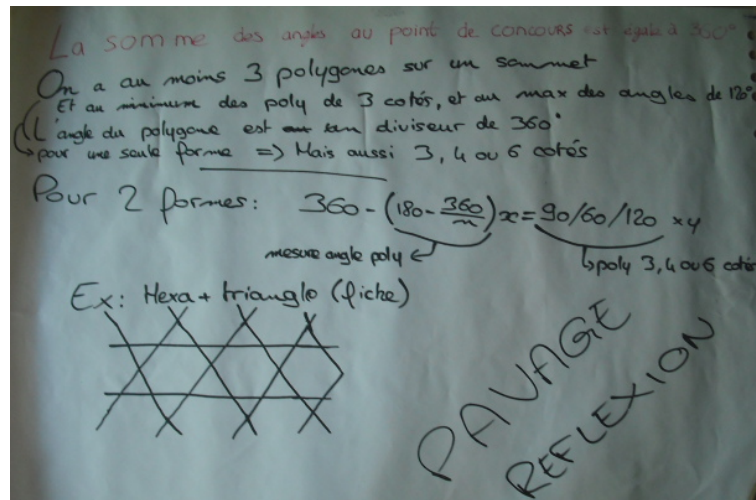 La somme des angles au point de concours est égale à 360°
On a au moins 3 polygones sur un sommet
Et au minimum des poly de 3 cotés, et au max des angles de 120°
L'angle du polygone est un diviseur de 360°
pour une seule forme => Mais aussi 3, 4 ou 6 cotés
Pour 2 formes: 360 - (180 - 360/n) x = 90/60/120 × y
mesure angle poly
poly 3, 4 ou 6 cotés
Ex: Hexa + triangle (fiche)
PAVAGE
REFLEXION